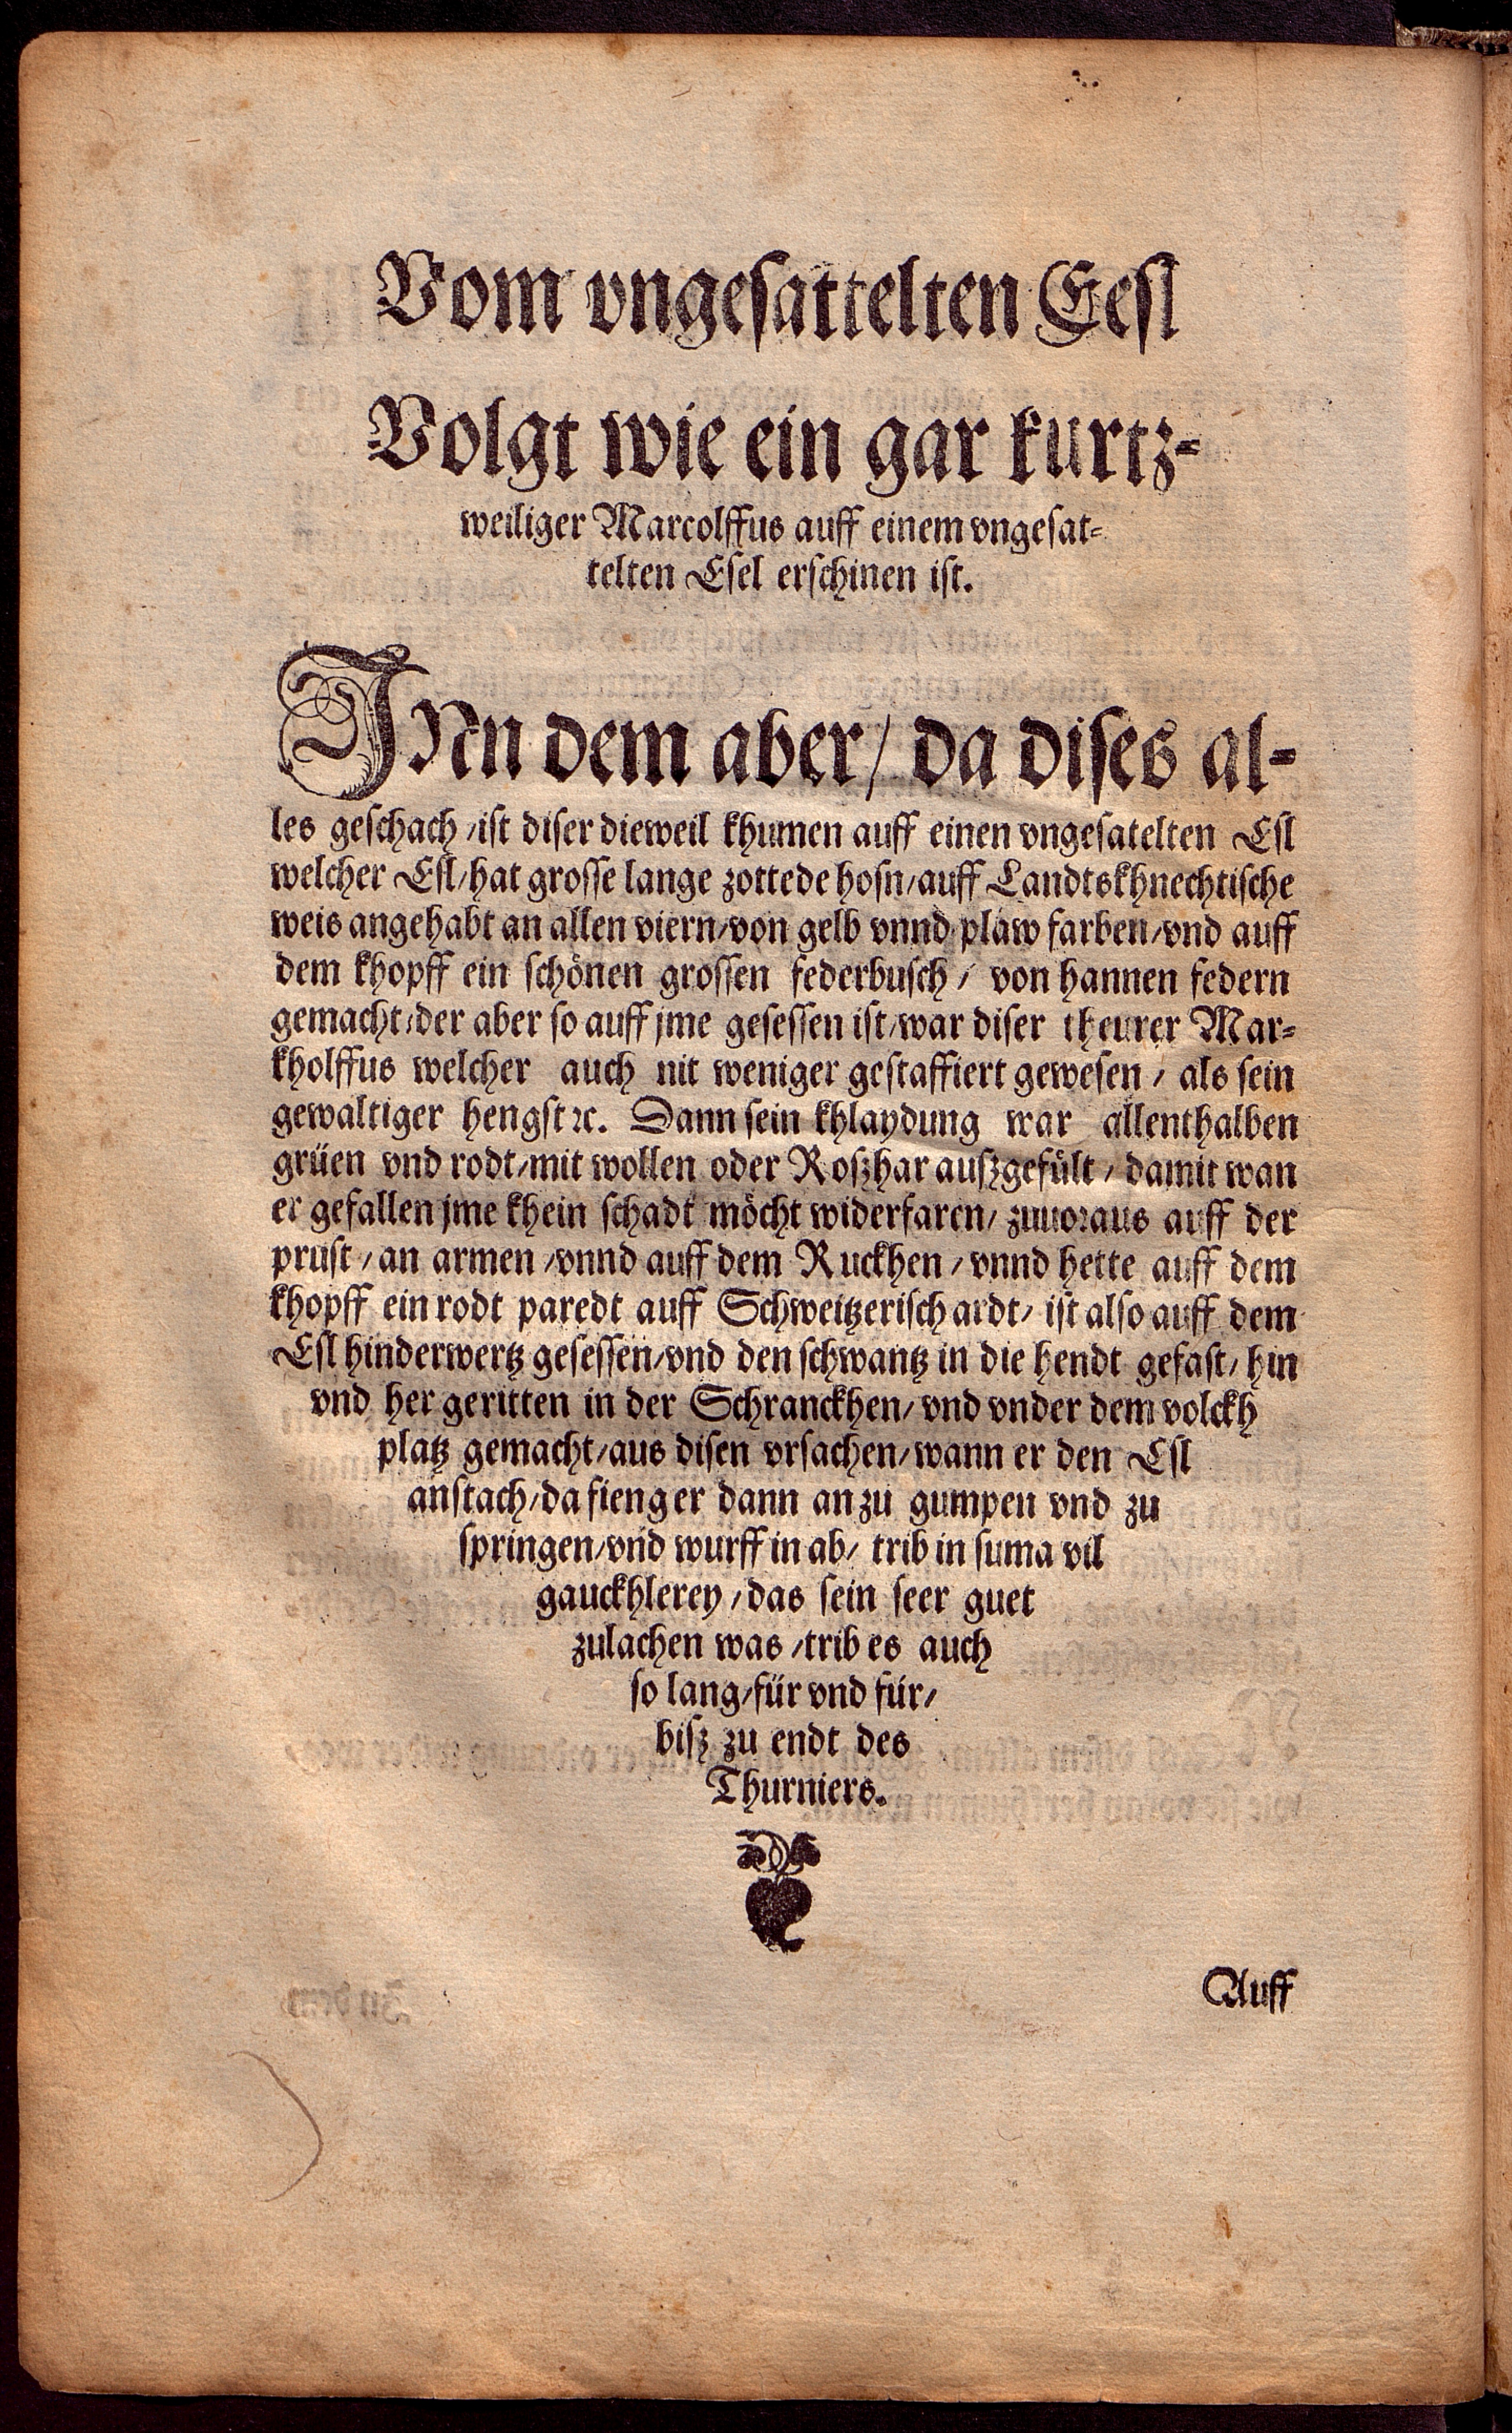 Vom vngesattelten Eesl
Volgt wie ein gar kurtz-
weiliger Marcolffus auff einem vngesat-
telten Esel erschinen ist.
INn dem aber/ da dises al-
les geschach/ist diser dieweil khumen auff einen vngesatelten Esl
welcher Esl/hat grosse lange zottede hosn/auff Landtskhnechtische
weis angehabt an allen viern/von gelb vnnd plaw farben/vnd auff
dem khopff ein schönen grossen federbusch/ von hannen federn
gemacht/der aber so auff jme gesessen ist/war diser theurer Mar-
kholffus welcher auch nit weniger gestaffiert gewesen/ als sein
gewaltiger hengst ꝛc. Dann sein khlaydung war allenthalben
grüen vnd rodt/mit wollen oder Roszhar auszgefült/ damit wan
er gefallen jme khein schadt möcht widerfaren/ zuuoraus auff der
prust/an armen/vnnd auff dem Ruckhen/vnnd hette auff dem
khopff ein rodt paredt auff Schweitzerisch ardt/ ist also auff dem
Esl hinderwertz gesessen/vnd den schwantz in die hendt gefast/ hin
vnd her geritten in der Schranckhen/ vnd vnder dem volckh
platz gemacht/aus disen vrsachen/wann er den Esl
anstach/da fieng er dann an zu gumpen vnd zu
springen/vnd wurff in ab/ trib in suma vil
gauckhlerey/das sein seer guet
zulachen was/trib es auch
so lang/für vnd für/
bisz zu endt des
Thurniers.
Auff